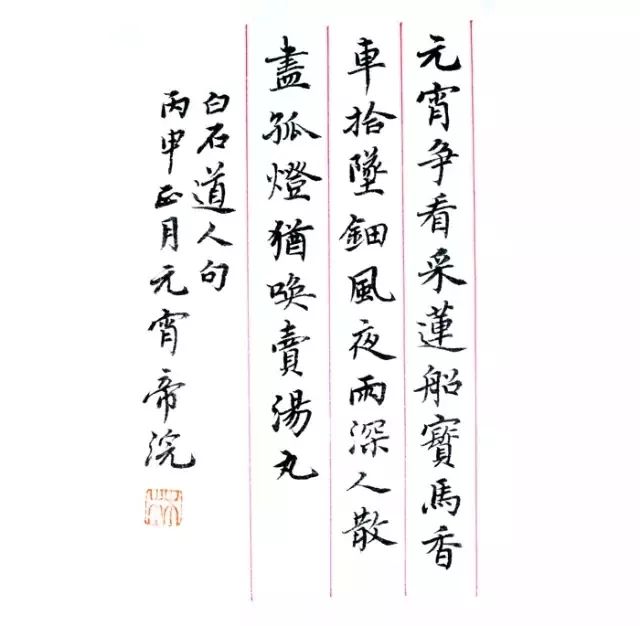 元宵争看采蓮船寶馬香
車拾墜鈿風夜雨深人散
盡孤燈猶喚賣湯丸
白石道人句
丙申正月元宵帝浣